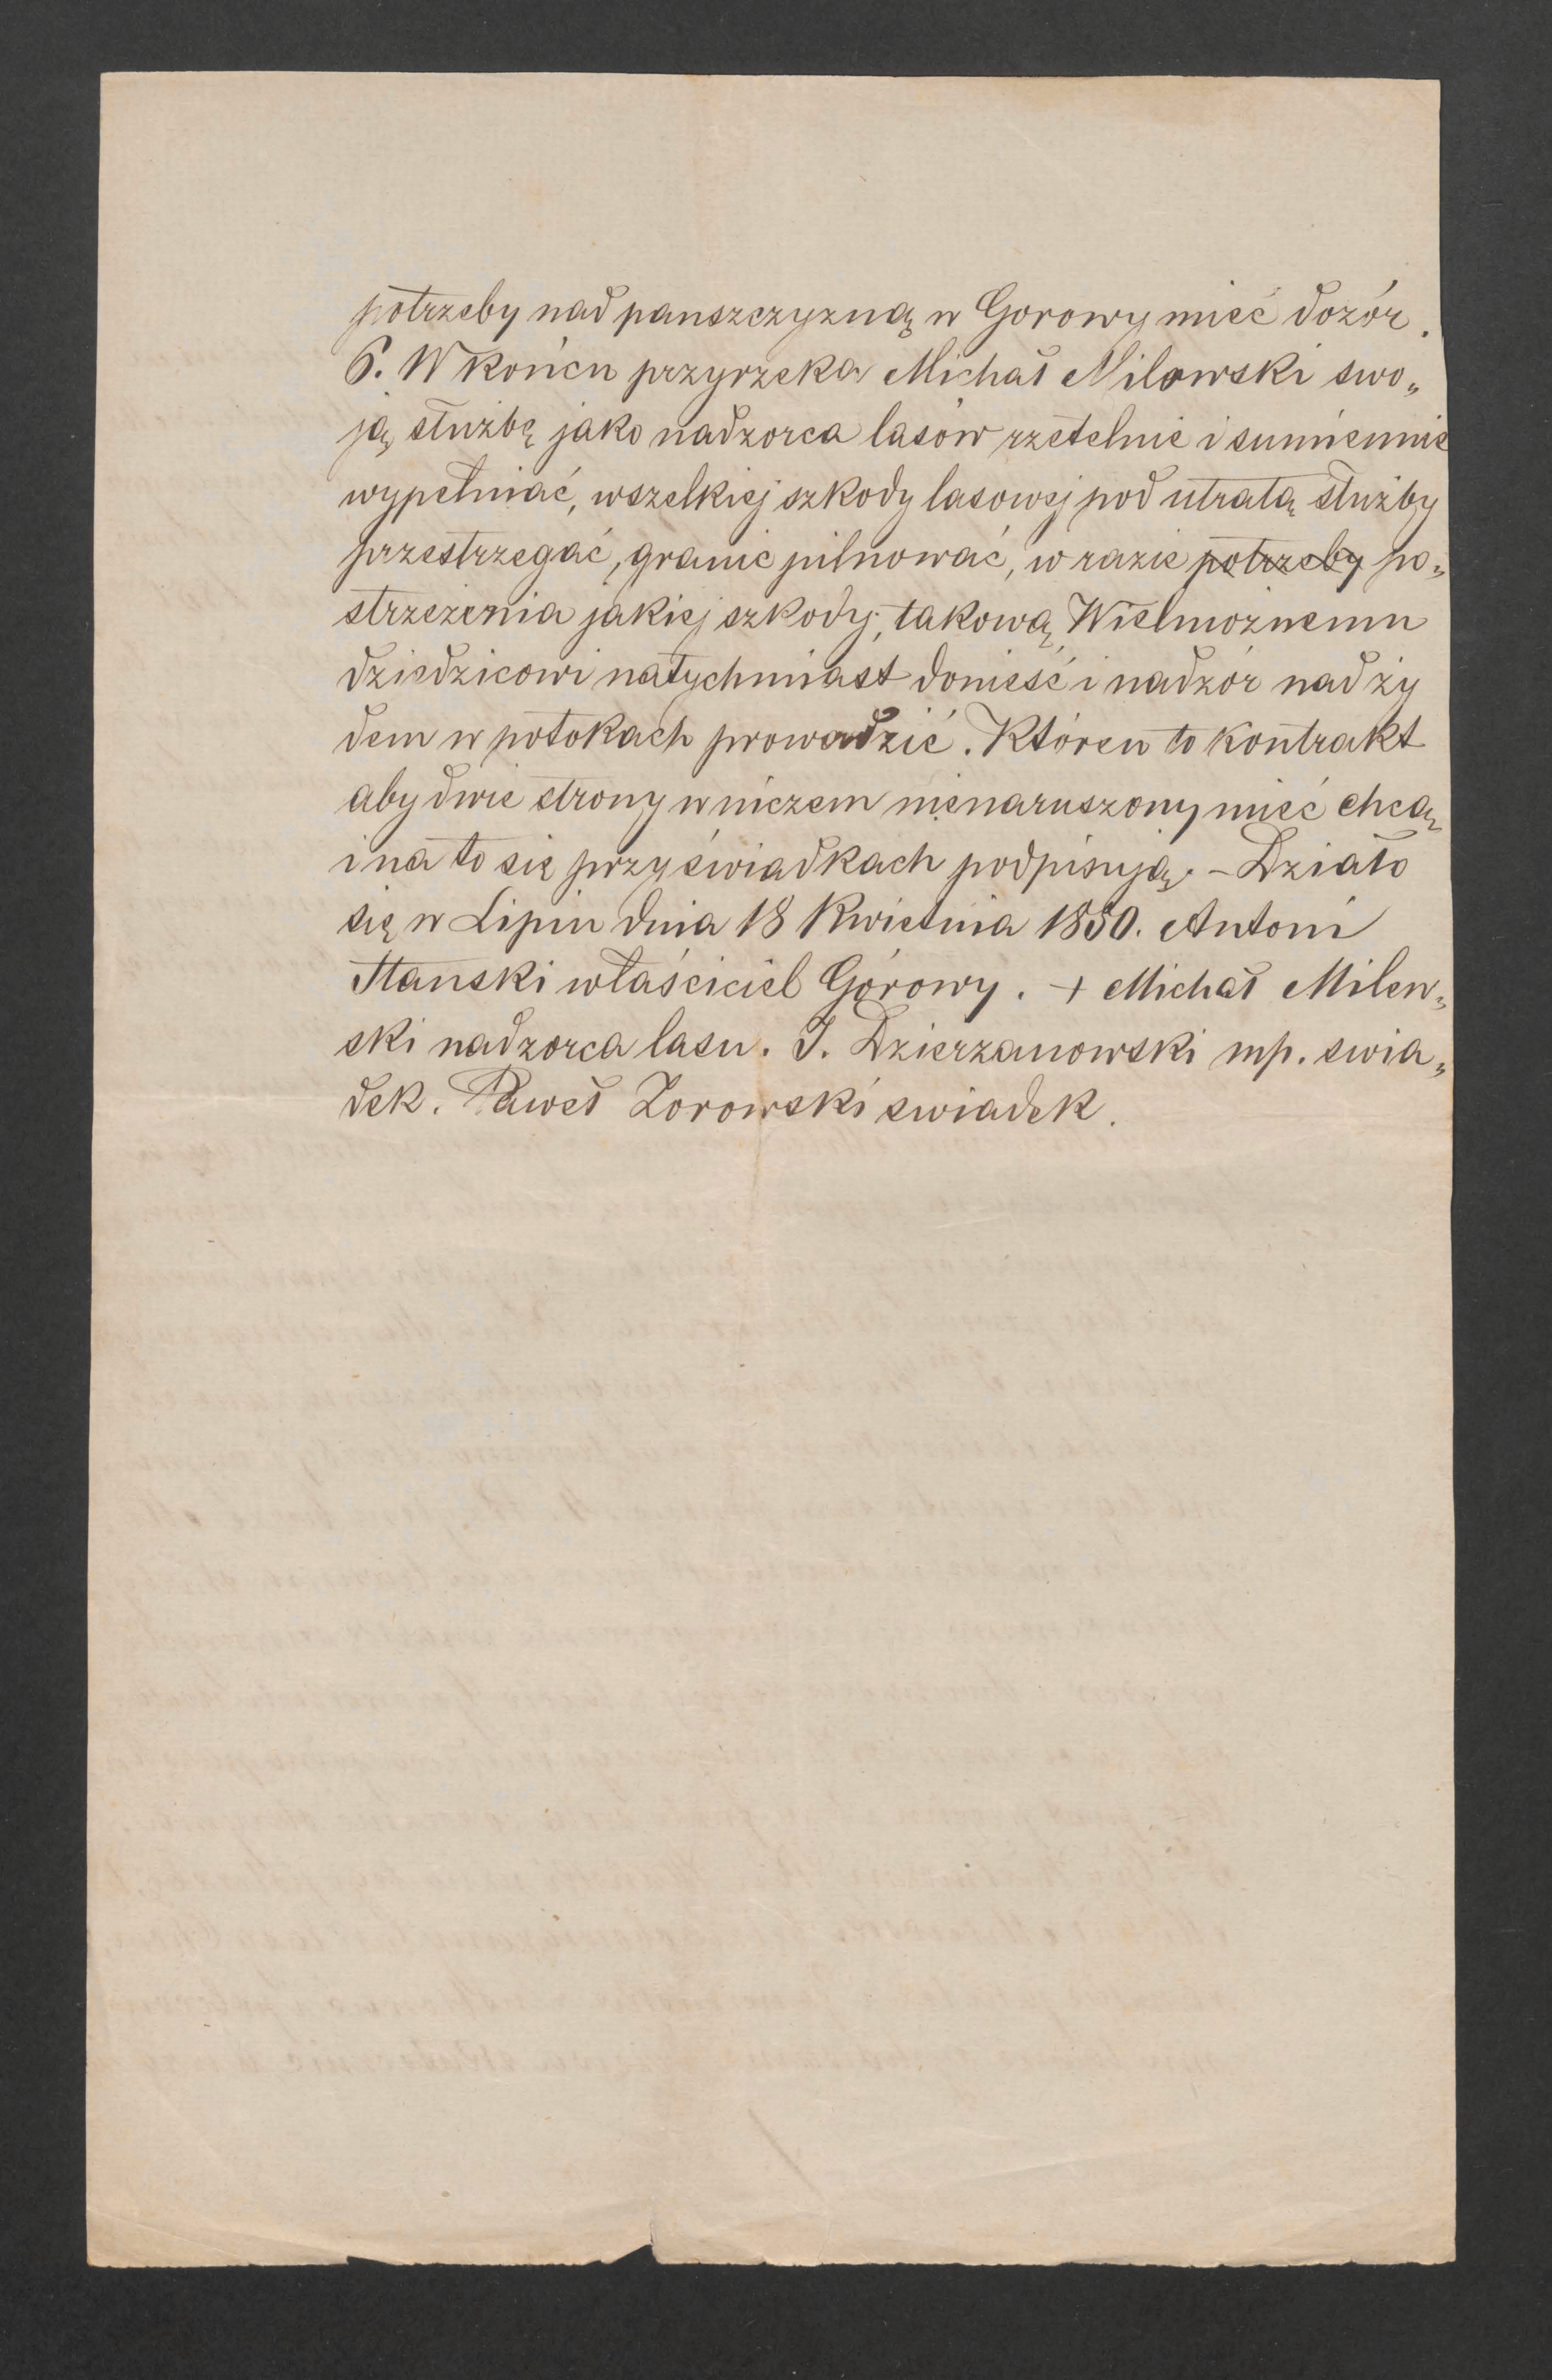 potrzeby nad panszczyzną w Gorowy mieć dozór.
6. W końcu przyrzeka Michał Milowski swo„
ją służbę jako nadzorca lasów rzetelnie i sumiennie
wypełniać, wszelkiej szkody lasowej pod utratą służby
przestrzegać, granic pilnować, w razie potrzeby po„
strzeżenia jakiej szkody, takową Wielmożnemu
dziedzicowi natychmiast donieść i nadzór nad ży
dem w potokach prowadzić. Któren to kontrakt
aby dwie strony w niczem nienaruszony mieć chcą
i na to się przy świadkach podpisują. – Działo
się w Lipiu dnia 18 Kwietnia 1850. Antoni
Stanski właściciel Górowy. + Michał Milew„
ski nadzorca lasu. J. Dzierzanowski mp. swia„
dek. Paweł Zorowski swiadek.